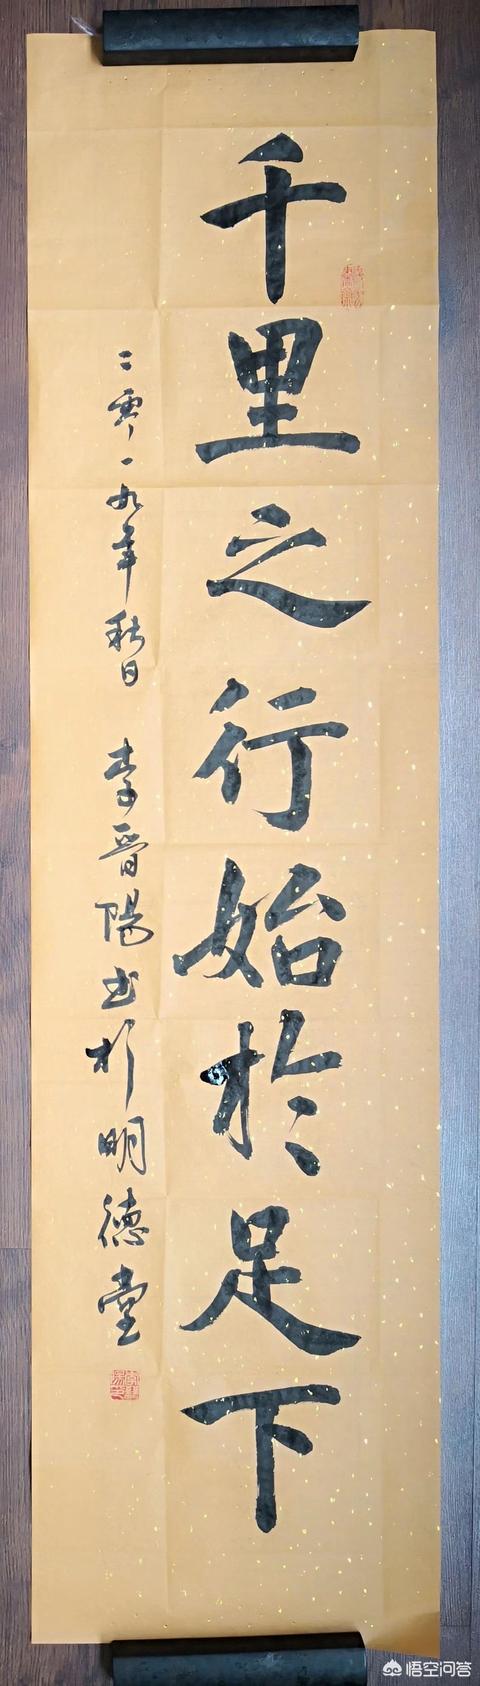 千里之行始於足下
二零一九年秋日 李晉陽书於明德堂
悟空问答